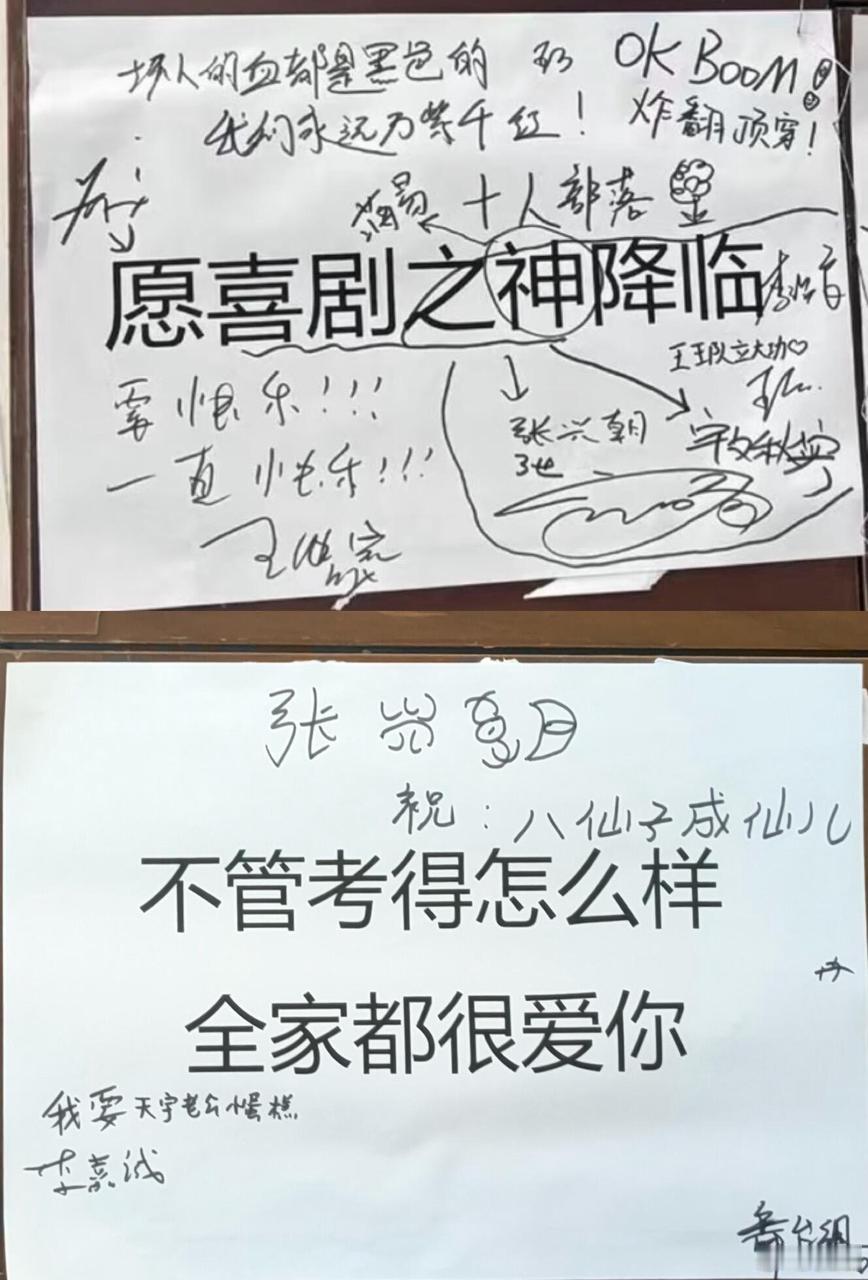 坏人的血都是黑色的
我们永远万紫千红!
OK BOOM!
炸翻顶穿!
十人部落
蒋易
愿喜剧之神降临
王王队立大功♡
要快乐!!!
一直快乐!!!
张兴朝
张
宇文秋实
张兴朝
祝:八仙子成仙儿
不管考得怎么样
全家都很爱你
我要天宇老公小蛋糕
李嘉诚